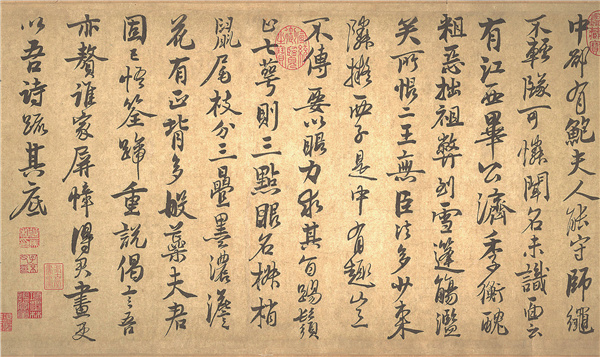 中卻有鮑夫人能守師繩
不輕墜可憐聞名未識面云
有江西畢公濟季衡醜
粗惡拙祖弊到雪篷觴濫
矣所恨二王無臣法多少東
鄰擬西子是中有趣豈
不傳要以眼力求其旨踢鬚
止七萼則三點眼名椒梢
鼠尾枝分三疊墨濃淡
花有正背多般蕊夫君
固已悟筌蹄重說偈言吾
亦贅誰家屏幛得君畫更
以吾詩疏其底